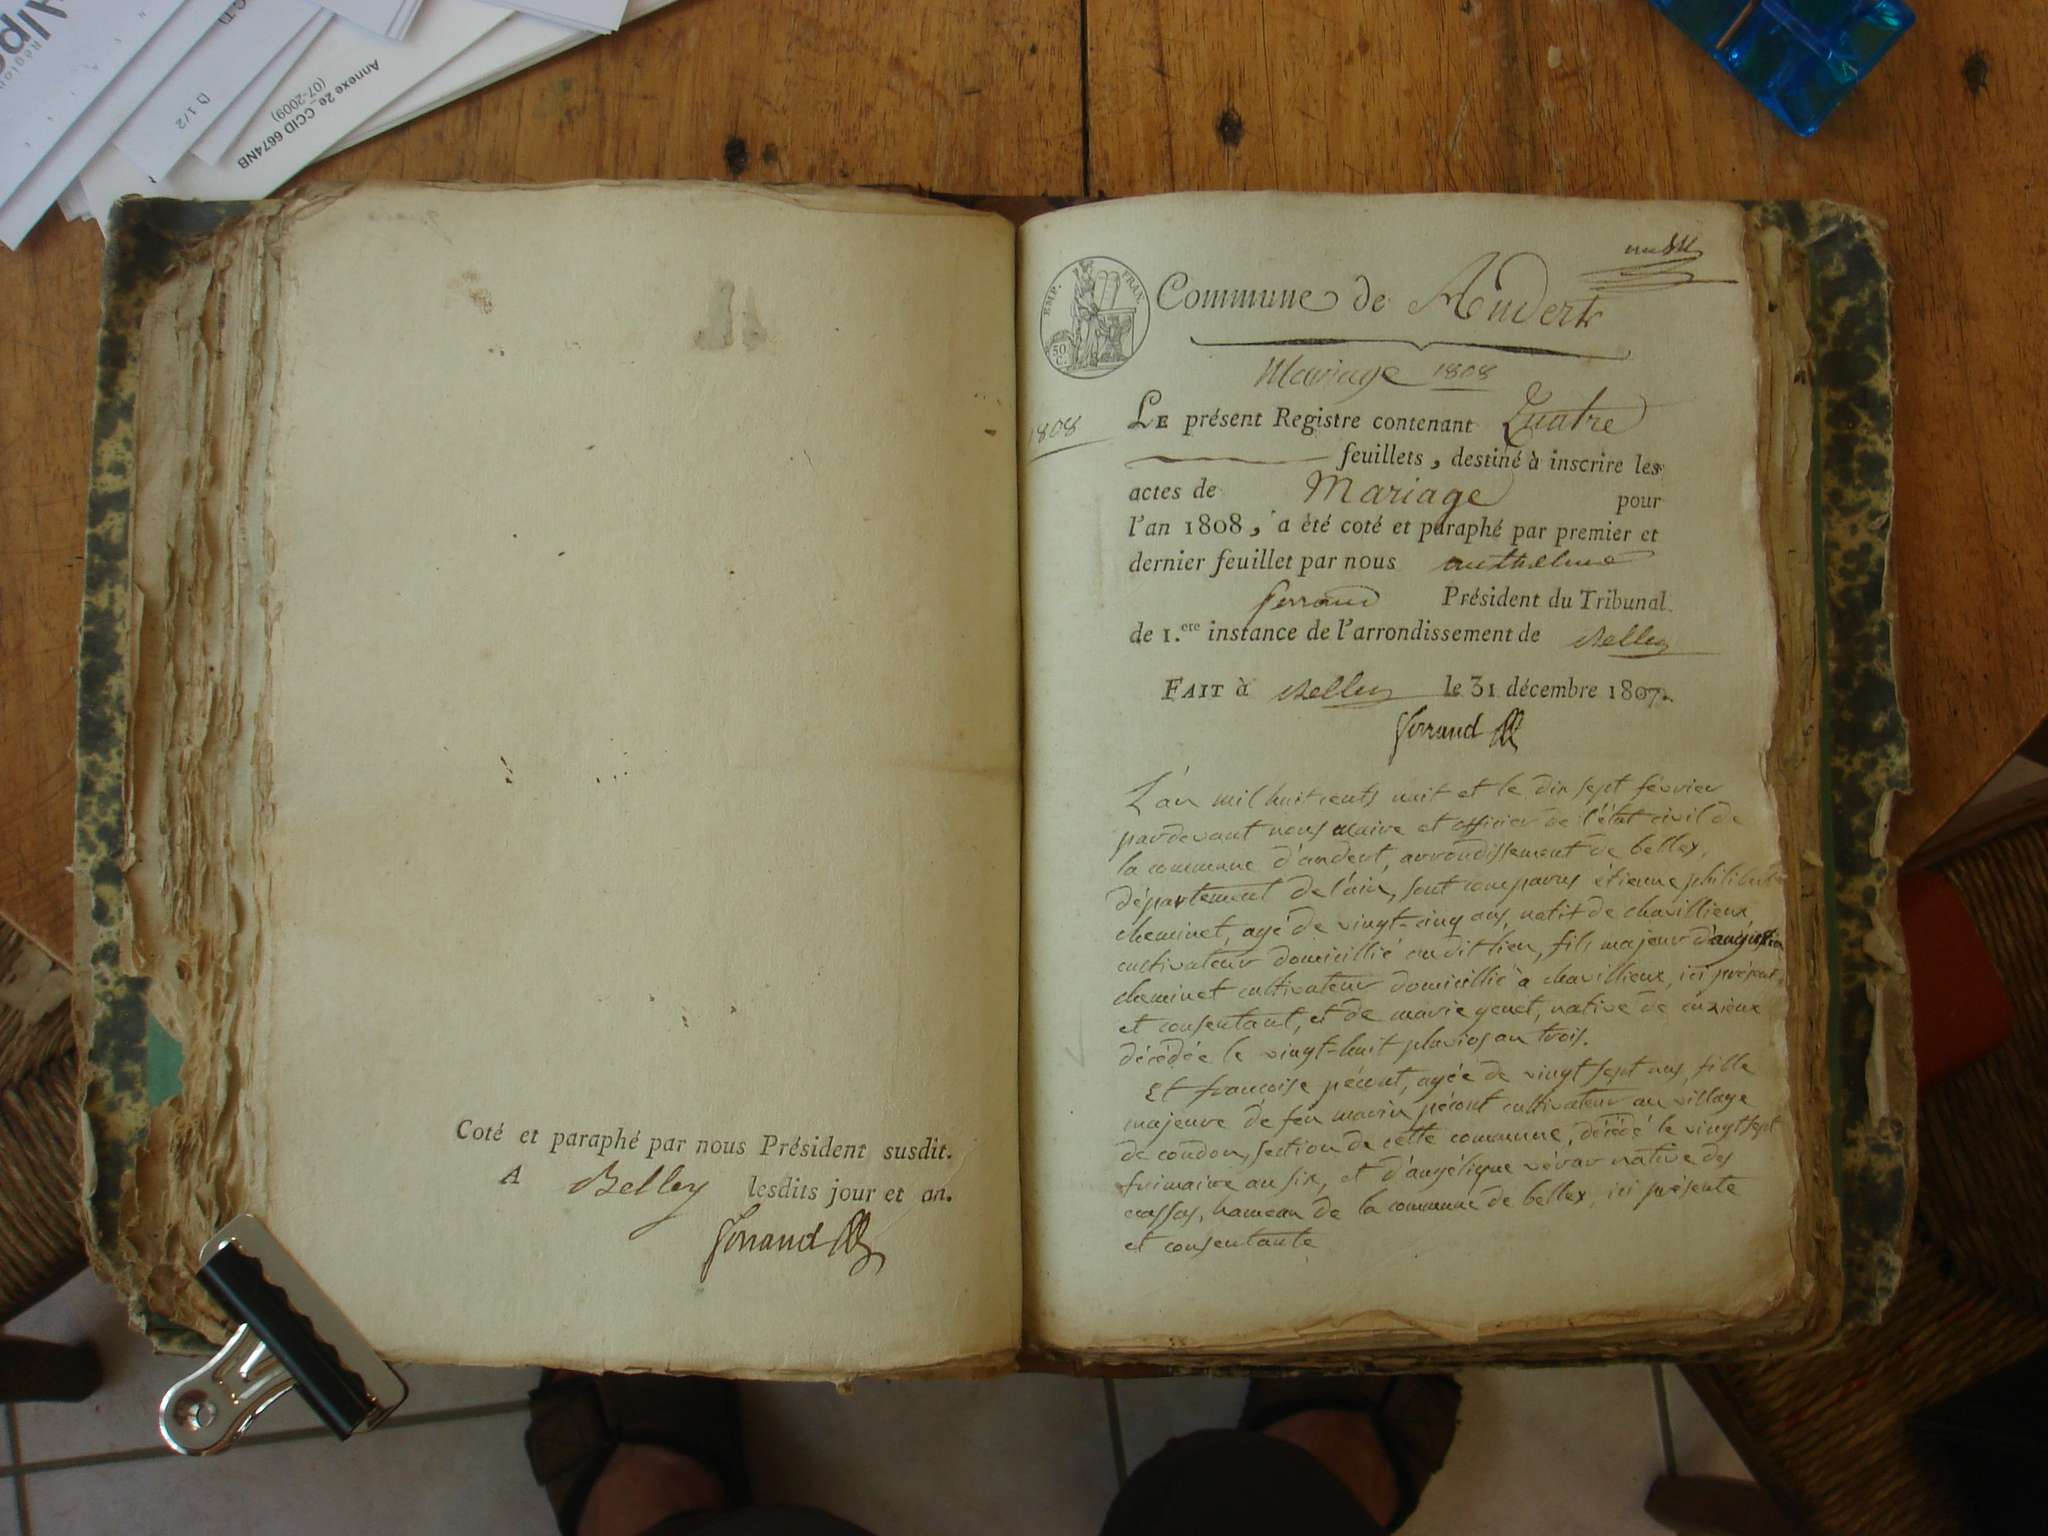 Annexe 2e_CCID 6674NB
(07-2009)
D 1/2
Coté et paraphé par nous Président susdit.
A Belley lesdits jour et an.
Ferrand
EMP. FRAN.
50 C.
Commune de Andert
Mariage 1808
1808
LE présent Registre contenant Quatre
feuillets, destiné à inscrire les
actes de Mariage pour
l'an 1808, a été coté et paraphé par premier et
dernier feuillet par nous anthelme
ferrand Président du Tribunal
de 1.ere instance de l'arrondissement de Belley
FAIT à Belley le 31 décembre 1807.
Ferrand
L'an mil huit cents huit et le dix sept fevrier
pardevant nous maire et officier de l'état civil de
la commune d'andert, arrondissement de belley,
département de l'ain, sont comparus étienne philibert
cheminet, agé de vingt-cinq ans, natif de chavillieux
cultivateur domicillié audit lieu, fils majeur d'augustin
cheminet cultivateur domicillié à chavillieux, ici présent
et consentant, et de marie genet, native de cuzieux
décédée le vingt-huit pluvios an trois.
Et francoise pécout, agée de vingt sept ans, fille
majeure de feu marin pécout cultivateur au village
de condon, section de cette commune, décédé le vingt sept
frimaire an six, et d'angélique native des
hameau de la commune de belley, ici présente
et consentante